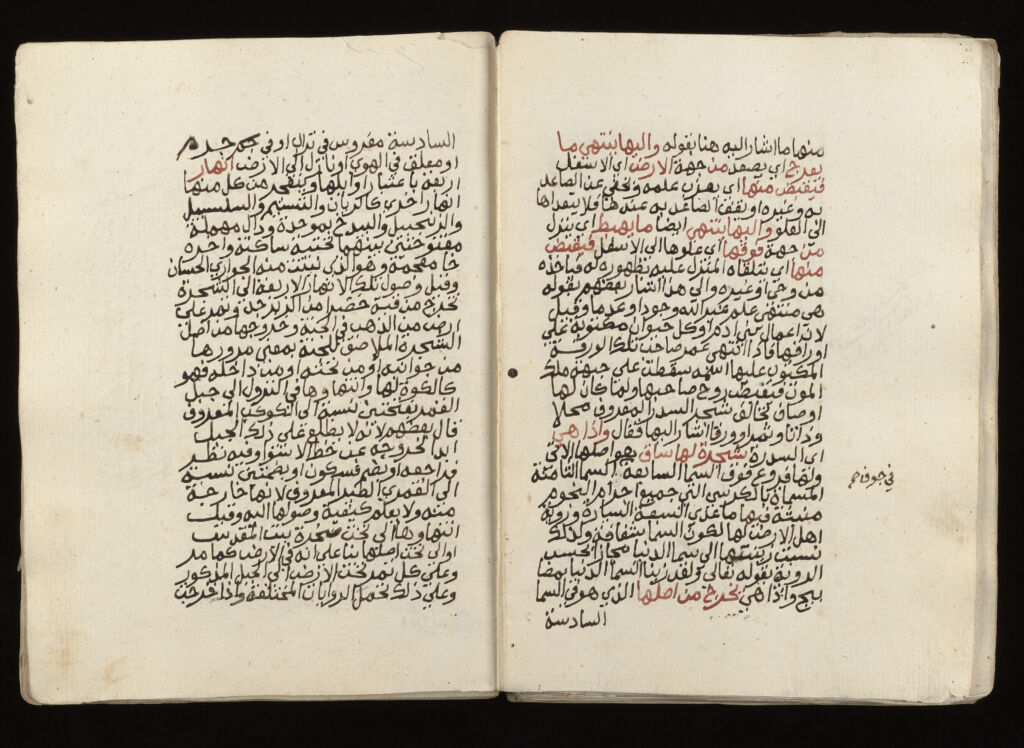 منها ما اشار اليه هنا بقوله واليها ينتهي ما
يعرج اي يصعد من جهة الارض اي الاسفل
فيقبض منها اي يعزب علمه ويخفى عن الصاعد
به وغيره او يقف الصاعد به عندها فلا يتعداها
الى العلو واليها ينتهي ايضا ما يهبط اي ينزل
من جهة فوقها اي علوها الى الاسفل فيقبض
منها اي يتلقاه المنزل عليه بظهوره له فياخذه
من وحي او غيره والى هذا اشار بعضهم بقوله
هي منتهى علم عبد الله وجودا وعدما وقيل
لان اعمال بني ادم او كل حيوان مكتوبة على
اوراقها فاذا انتهى عمر صاحب تلك الورقة
المكتوب عليها اسمه سقطت على جبهة ملك
الموت فيقبض روح صاحبها ولما كان لها
اوصاف تخالف شجر السدر المعروف محلا
وذاتا وثمرا وورقا اشار اليها فقال واذا هي
اي السدرة شجرة لها ساق هو اصلها الاتي
ولها فروع فوق السما السابعة السما الثامنة
المسماة بالكرسي التي جميع اجرام النجوم
مثبتة فيها ما عدى السبعة السيارة وروية
اهل الارض لها لكون السما شفافة ولذلك
نسبت زينتها الى سما الدنيا مجازا لحسب
الروية بقوله تعالى ولقد زينا السما الدنيا بمصا
بيح واذا هي يخرج من اصلها الذي هو في السما
السادسة
في جوفاه
السادسة مغروس في تراب او في جرم
او معلق في الهوى او نازل الى الارض انهار
اربعة باعتبار اوايلها ويتفجر من كل منها
انهار اخرى كالريان والتسنيم والسلسبيل
والزنجبيل والبيدخ بموحدة ودال مهملة
مفتوحتين بينهما تحتية ساكنة واخره
خا معجمة وهو الذي تنبت منه الجواري الحسان
وقبل وصول تلك الانهار الاربعة الى الشجرة
تخرج من قبة خضرا من الزبرجد وتمر على
ارض من الذهب في الجنة وخروجها من اصل
الشجرة الملاصق للجنة بمعنى مرورها
من جوانبه او من تحته او من داخله فهو
كالكوة لها وانتهاوها في النزول الى جبل
القمر بفتحتين نسبة الى الكوكب المعروف
قال بعضهم لانه لا يطلع على ذلك الجبل
ابدا لخروجه عن خط الاستوا وفيه نظر
فراجعه او بضم فسكون او بضمتين نسبة
الى القمري الطير المعروف لانها خارجة
منه ولا يعلم كيفية وصولها اليه وقيل
انتهاوها الى تحت صخرة بيت المقدس
او الى تحت اصلها بنا على انه في الارض كما مر
وعلى كل تمر تحت الارض الى الجبل المذكور
وعلى ذلك تحمل الروايات المختلفة واذا خرجت